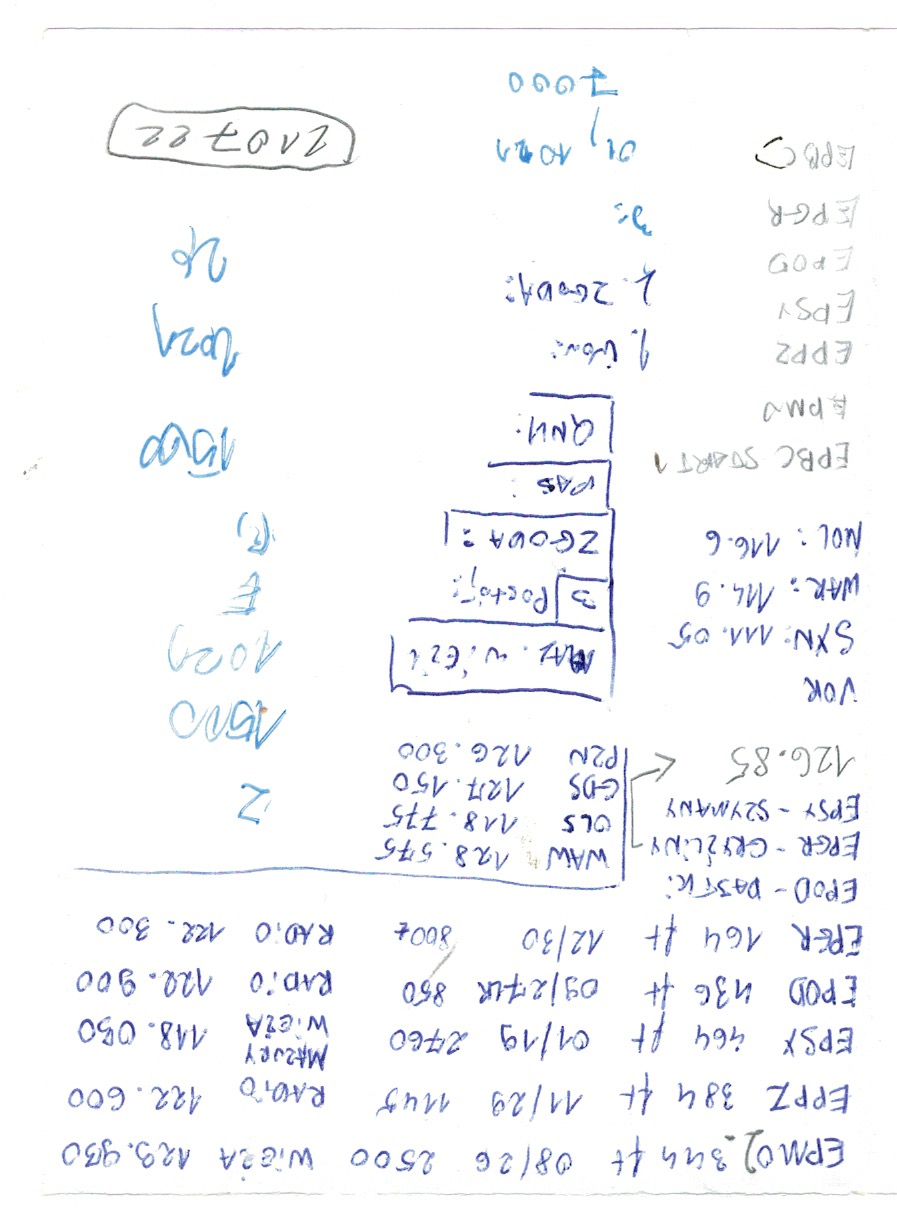 EPMO 344 ft 08/26 2500 WIEŻA 123.930
EPPZ 384 ft 11/29 1145 RADIO 122.600
EPSY 464 ft 01/19 2760 MAZURY WIEŻA 118.050
EPOD 436 ft 09/27LR 850 RADIO 122.900
EPGR 164 ft 12/30 800 RADIO 122.300
EPOD - DAJTKI
EPGR - GRYŹLINY
EPSY - SZYMANY
126.85
WAW 128.575
OLS 118.775
GDS 127.150
PZN 126.300
Z
1500
1021
E
VOR
SXN: 111.05
WAR: 114.9
MOL: 116.6
MAZ. WIEŻA
3 Postój:
ZGODA:
PAS:
QNH:
1500
1021
26
EPBC START 1
EPMO
EPPZ
EPSY
EPOD
EPGR
EPBC
1.
2. ZGODA:
3:
01, 1021
7000
210722